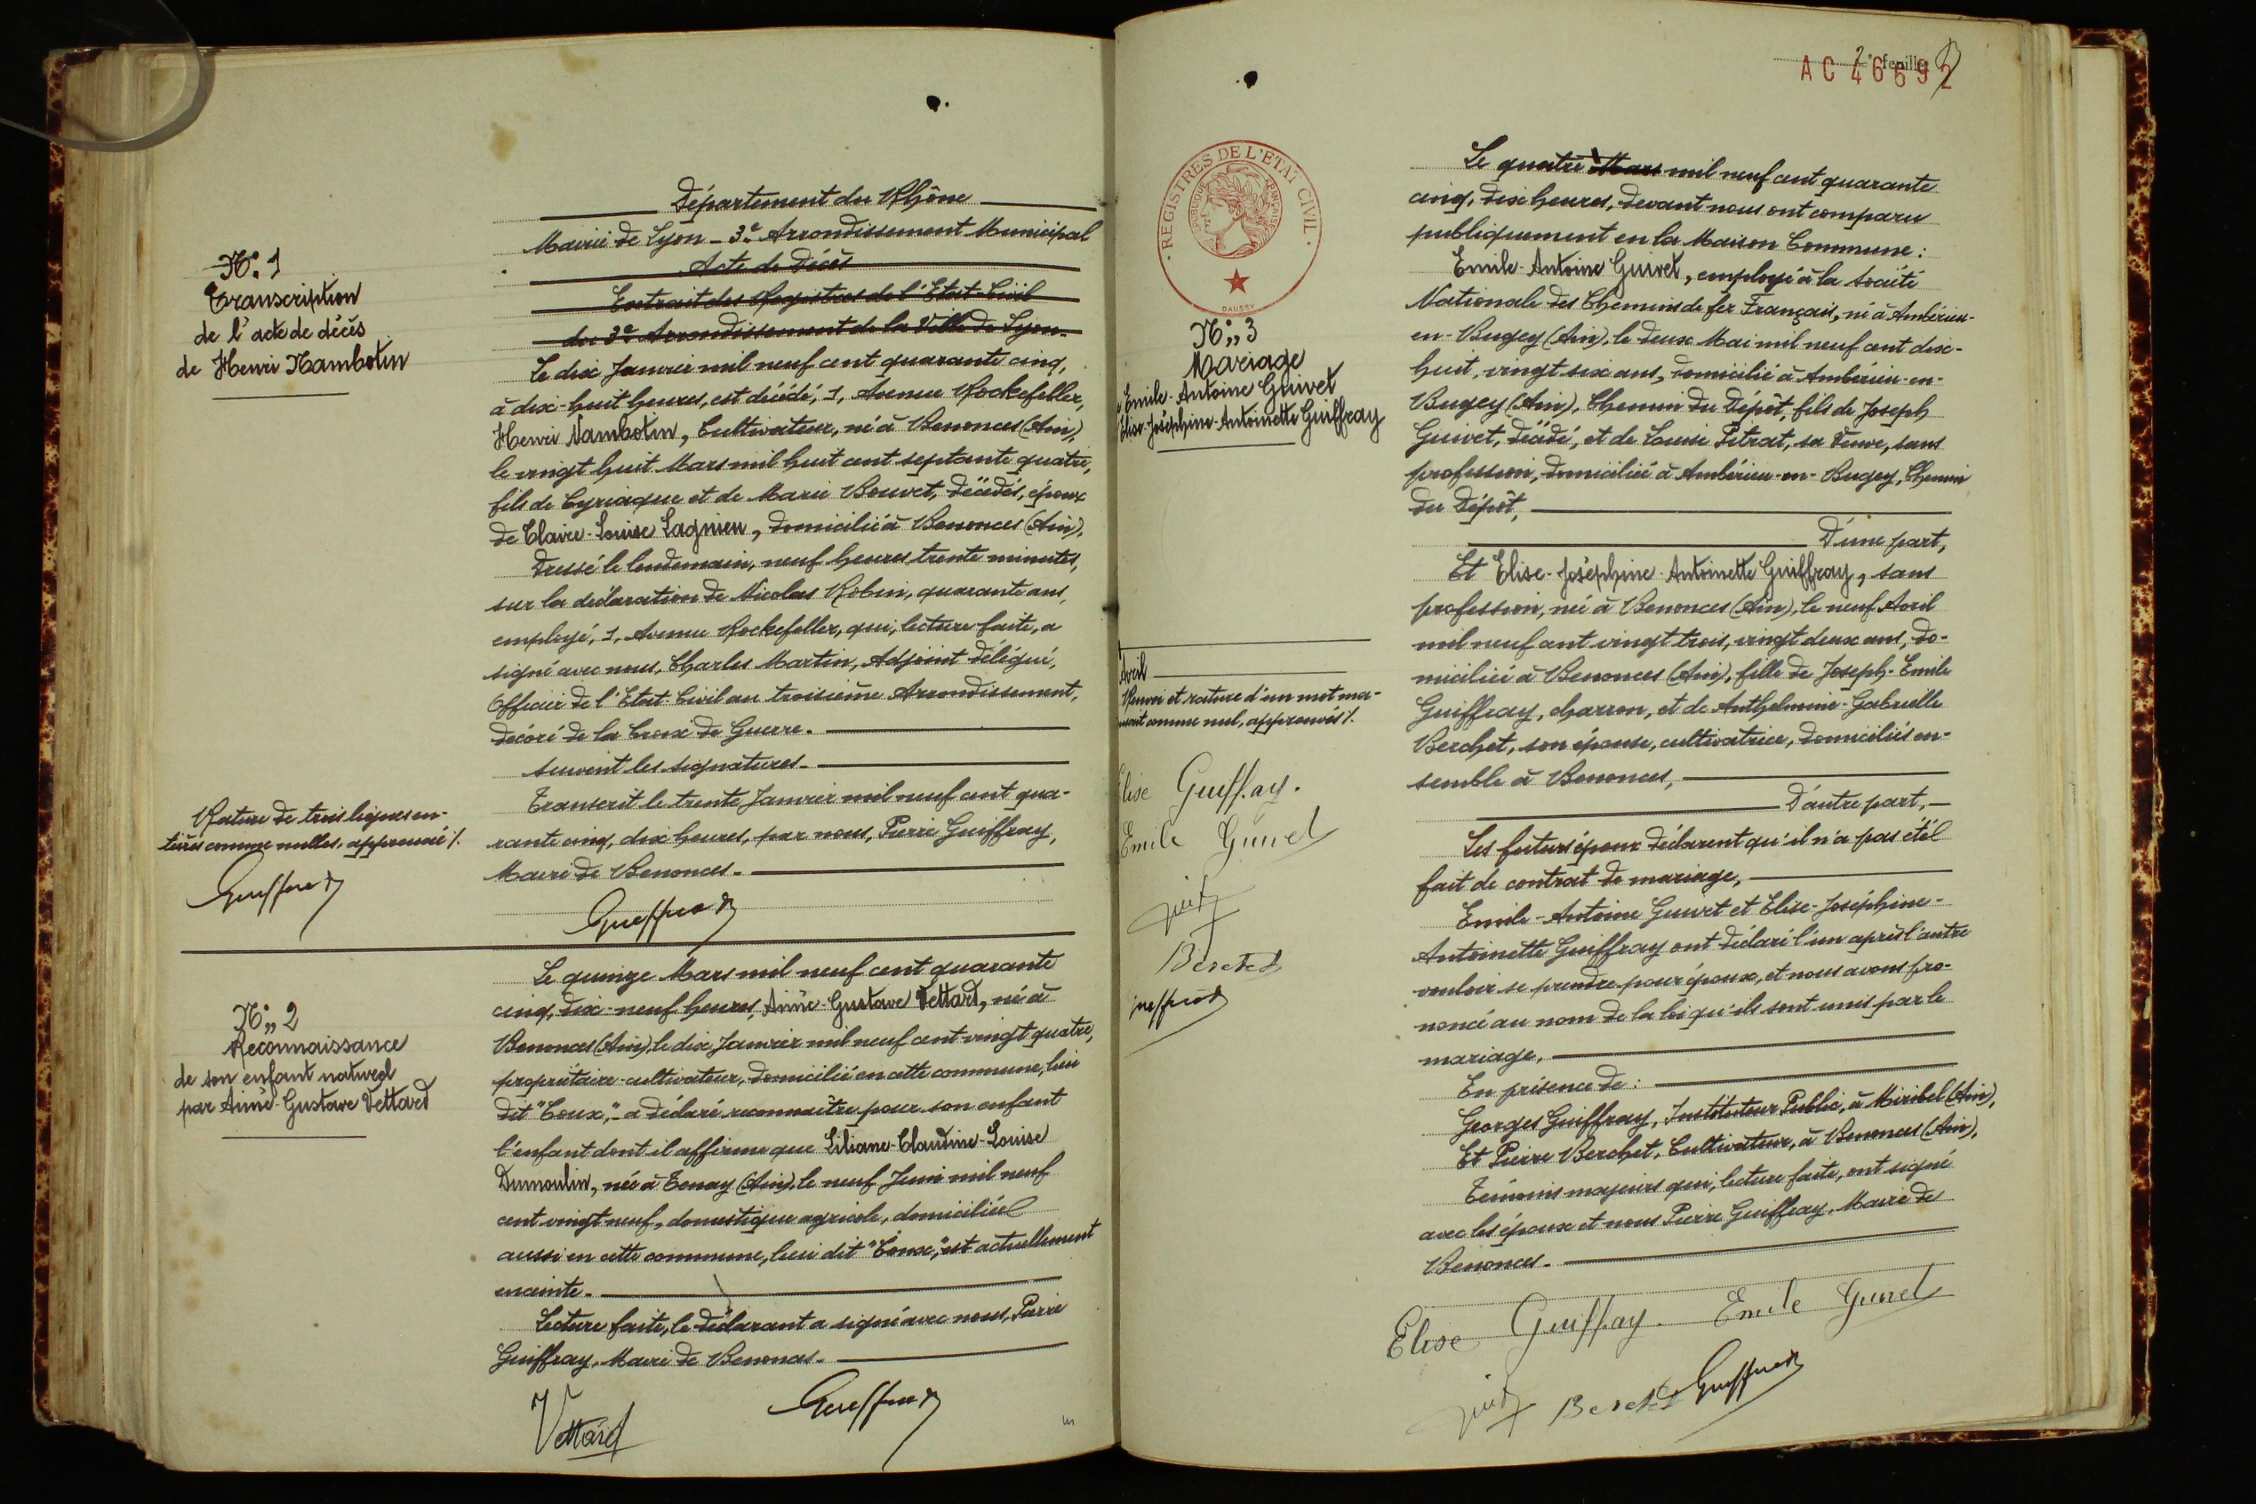 N°. 1
Transcription
de l'acte de décès
de Henri Nambotin
Département du Rhône
Mairie de Lyon - 3e Arrondissement Municipal
Acte de Décès
Extrait des Registres de l'Etat-Civil
du 3e Arrondissement de la Ville de Lyon.
Le dix Janvier mil neuf cent quarante cinq,
à dix-huit heures, est décédé, 1, Avenue Rockefeller,
Henri Nambotin, Cultivateur, né à Benonces (Ain),
le vingt huit Mars mil huit cent septante quatre,
fils de Cyriaque et de Marie Bouvet, décédés, époux
de Claire-Louise Lagnieu, domicilié à Benonces (Ain).
Dressé le lendemain, neuf heures trente minutes,
sur la déclaration de Nicolas Robin, quarante ans,
employé, 1, Avenue Rockefeller, qui, lecture faite, a
signé avec nous, Charles Martin, Adjoint délégué,
Officier de l'Etat-Civil au troisième Arrondissement,
décoré de la Croix de Guerre.
suivent les signatures.
Transcrit le trente Janvier mil neuf cent qua-
rante cinq, dix heures, par nous, Pierre Guiffray,
Maire de Benonces.
Rature de trois lignes en-
tières comme nulles, approuvé /.
Guiffray
Guiffray
N°,, 2
Reconnaissance
de son enfant naturel
par Aimé-Gustave Vettard
Le quinze Mars mil neuf cent quarante
cinq, dix-neuf heures, Aimé-Gustave Vettard, né à
Benonces (Ain), le dix Janvier mil neuf cent vingt quatre,
propriétaire-cultivateur, domicilié en cette commune, lieu
dit "Coux", a déclaré reconnaître pour son enfant
l'enfant dont il affirme que Liliane-Claudine-Louise
Dumoulin, née à Tenay (Ain), le neuf Juin mil neuf
cent vingt neuf, domestique agricole, domiciliée
aussi en cette commune, lieu dit "Coux", est actuellement
enceinte.
Lecture faite, le déclarant a signé avec nous, Pierre
Guiffray, Maire de Benonces.
Vettard
Guiffray
2e feuille
AC 46692
REGISTRES DE L'ETAT CIVIL
REPUBLIQUE FRANÇAISE
DAUSSY
N°,, 3
Mariage
Emile-Antoine Guivet
Elise-Joséphine-Antoinette Guiffray
Le quatre Mars mil neuf cent quarante
cinq, dix heures, devant nous ont comparu
publiquement en la Maison Commune :
Emile-Antoine Guivet, employé à la Société
Nationale des Chemins de fer Français, né à Ambérieu-
en-Bugey (Ain), le deux Mai mil neuf cent dix-
huit, vingt six ans, domicilié à Ambérieu-en-
Bugey (Ain), Chemin du Dépôt, fils de Joseph
Guivet, décédé, et de Louise Pitrat, sa Veuve, sans
profession, domiciliée à Ambérieu-en-Bugey, Chemin
du Dépôt,
D'une part,
Et Elise-Joséphine-Antoinette Guiffray, sans
profession, née à Benonces (Ain), le neuf Avril
mil neuf cent vingt trois, vingt deux ans, do-
miciliée à Benonces (Ain), fille de Joseph-Emile
Guiffray, charron, et de Anthelmine-Gabrielle
Berchet, son épouse, cultivatrice, domiciliés en-
semble à Benonces,
D'autre part,
Les futurs époux déclarent qu'il n'a pas été
fait de contrat de mariage,
Emile-Antoine Guivet et Elise-Joséphine-
Antoinette Guiffray ont déclaré l'un après l'autre
vouloir se prendre pour époux, et nous avons pro-
noncé au nom de la loi qu'ils sont unis par le
mariage.
En présence de :
Georges Guiffray, Instituteur Public, à Miribel (Ain),
Et Pierre Berchet, Cultivateur, à Benonces (Ain),
Témoins majeurs qui, lecture faite, ont signé
avec les époux et nous Pierre Guiffray, Maire de
Benonces.
Avril
Renvoi et rature d'un mot
comme nul, approuvés /.
Elise Guiffray.
Emile Guivet
Berchet
Elise Guiffray. Emile Guivet
Berchet Guiffray